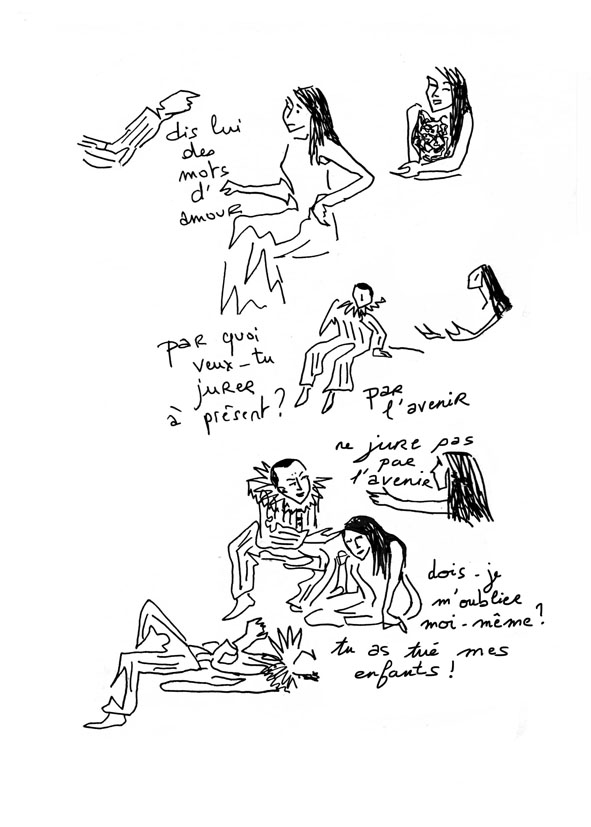 dis lui
des
mots
d'
amour
par quoi
veux-tu
jurer
à présent?
par
l'avenir
ne jure pas
par
l'avenir
dois-je
m'oublier
moi-même?
tu as tué mes
enfants!